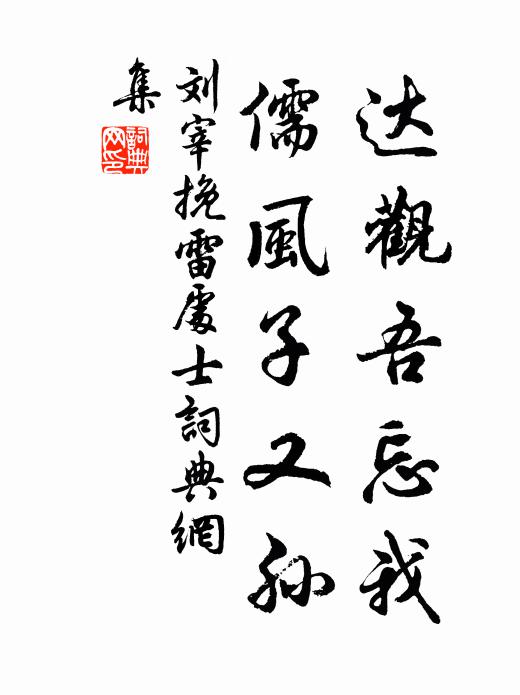 达觀吾忘我
儒風子又孙
刘宰挽雷處士詞典網
集
詞典
网印